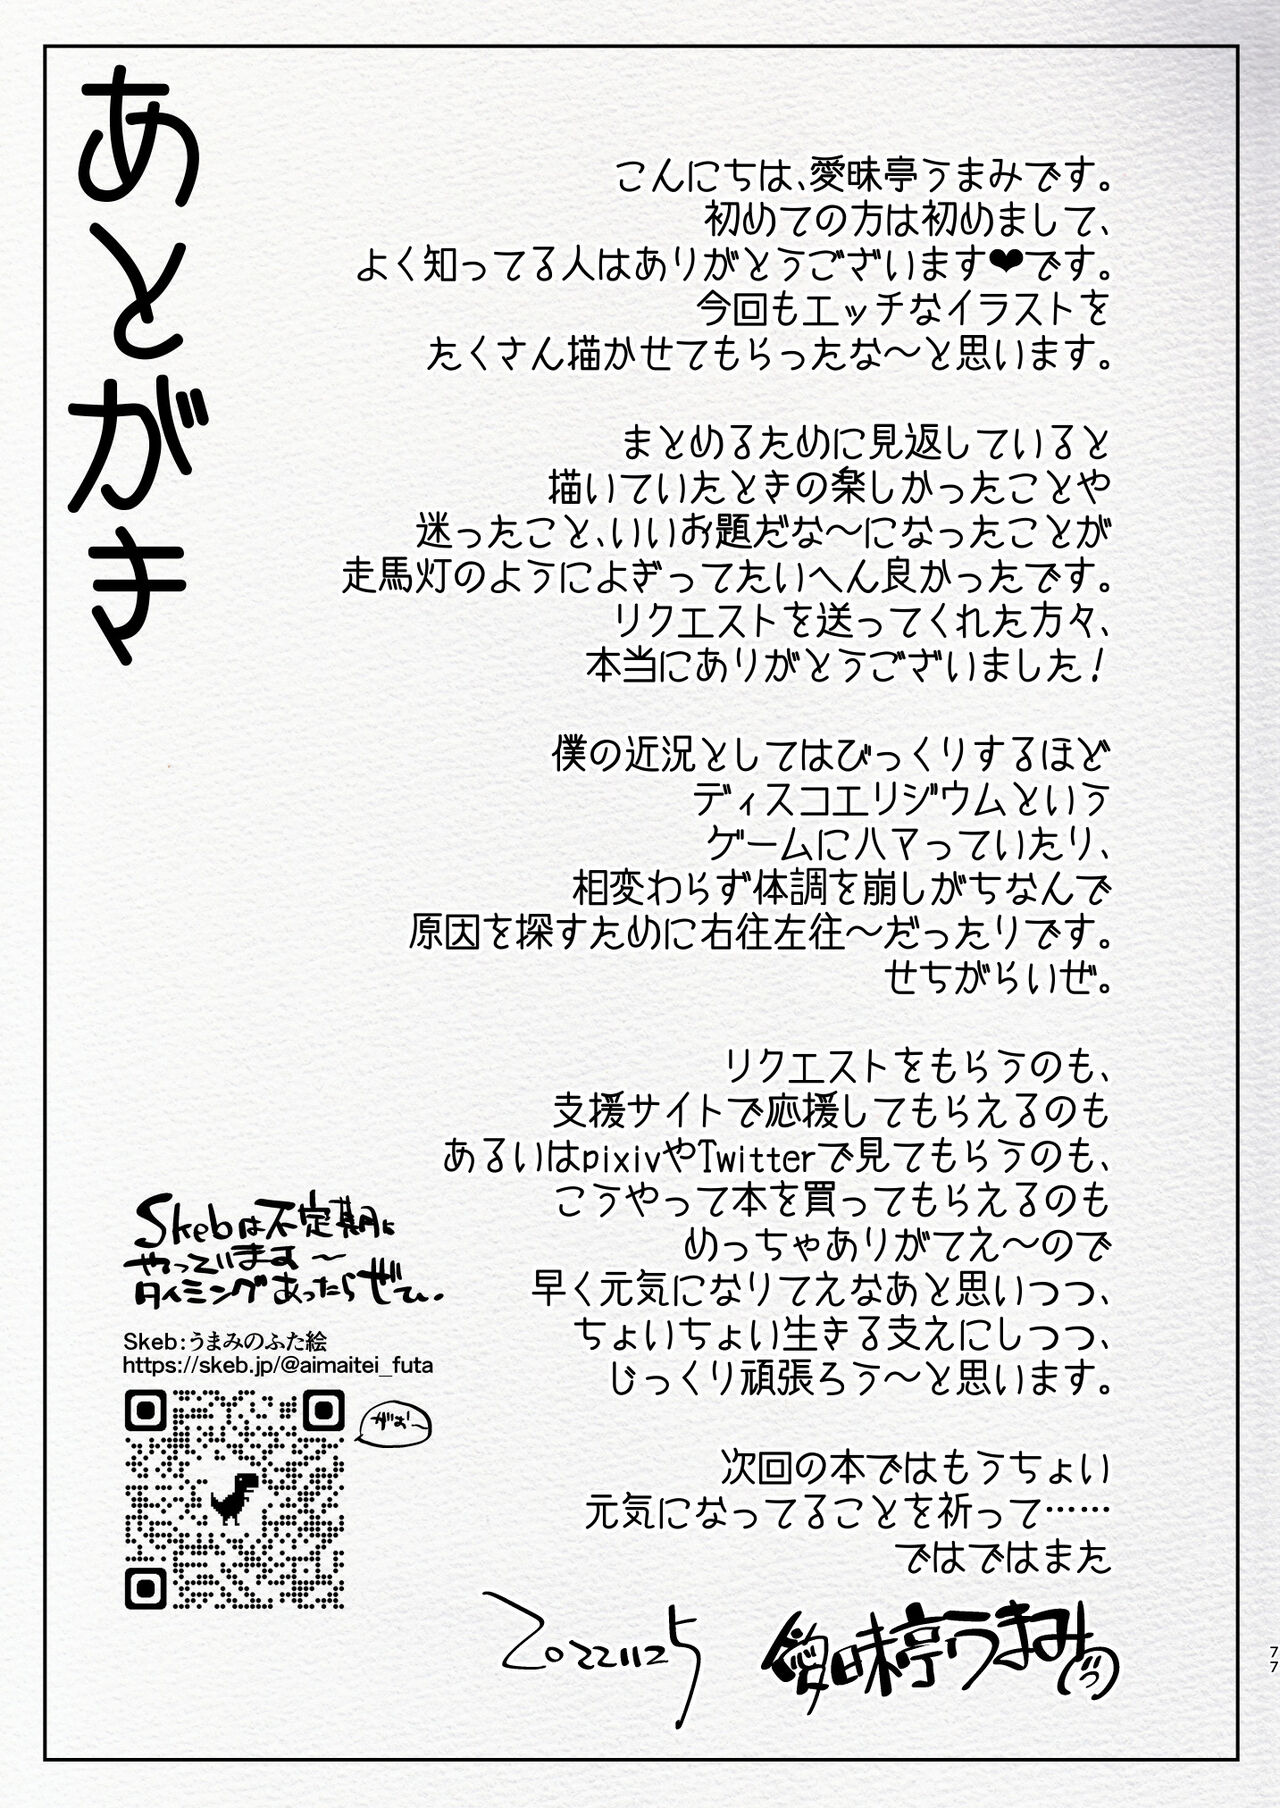 あとがき
こんにちは、愛昧亭うまみです。
初めての方は初めまして、
よく知ってる人はありがとうございます❤です。
今回もエッチなイラストを
たくさん描かせてもらったな〜と思います。
まとめるために見返していると
描いていたときの楽しかったことや
迷ったこと、いいお題だな〜になったことが
走馬灯のようによぎってたいへん良かったです。
リクエストを送ってくれた方々、
本当にありがとうございました!
僕の近況としてはびっくりするほど
ディスコエリジウムという
ゲームにハマっていたり、
相変わらず体調を崩しがちなんで
原因を探すために右往左往〜だったりです。
せちがらいぜ。
リクエストをもらうのも、
支援サイトで応援してもらえるのも
あるいはpixivやTwitterで見てもらうのも、
こうやって本を買ってもらえるのも
めっちゃありがてえ〜ので
早く元気になりてえなあと思いつつ、
ちょいちょい生きる支えにしつつ、
じっくり頑張ろう〜と思います。
次回の本ではもうちょい
元気になってることを祈って……
ではではまた
20221125
愛昧亭うまみ
Skebは不定期に
やっています〜
タイミングあったらぜひ.
Skeb:うまみのふた絵
https://skeb.jp/@aimaitei_futa
がお〜
77